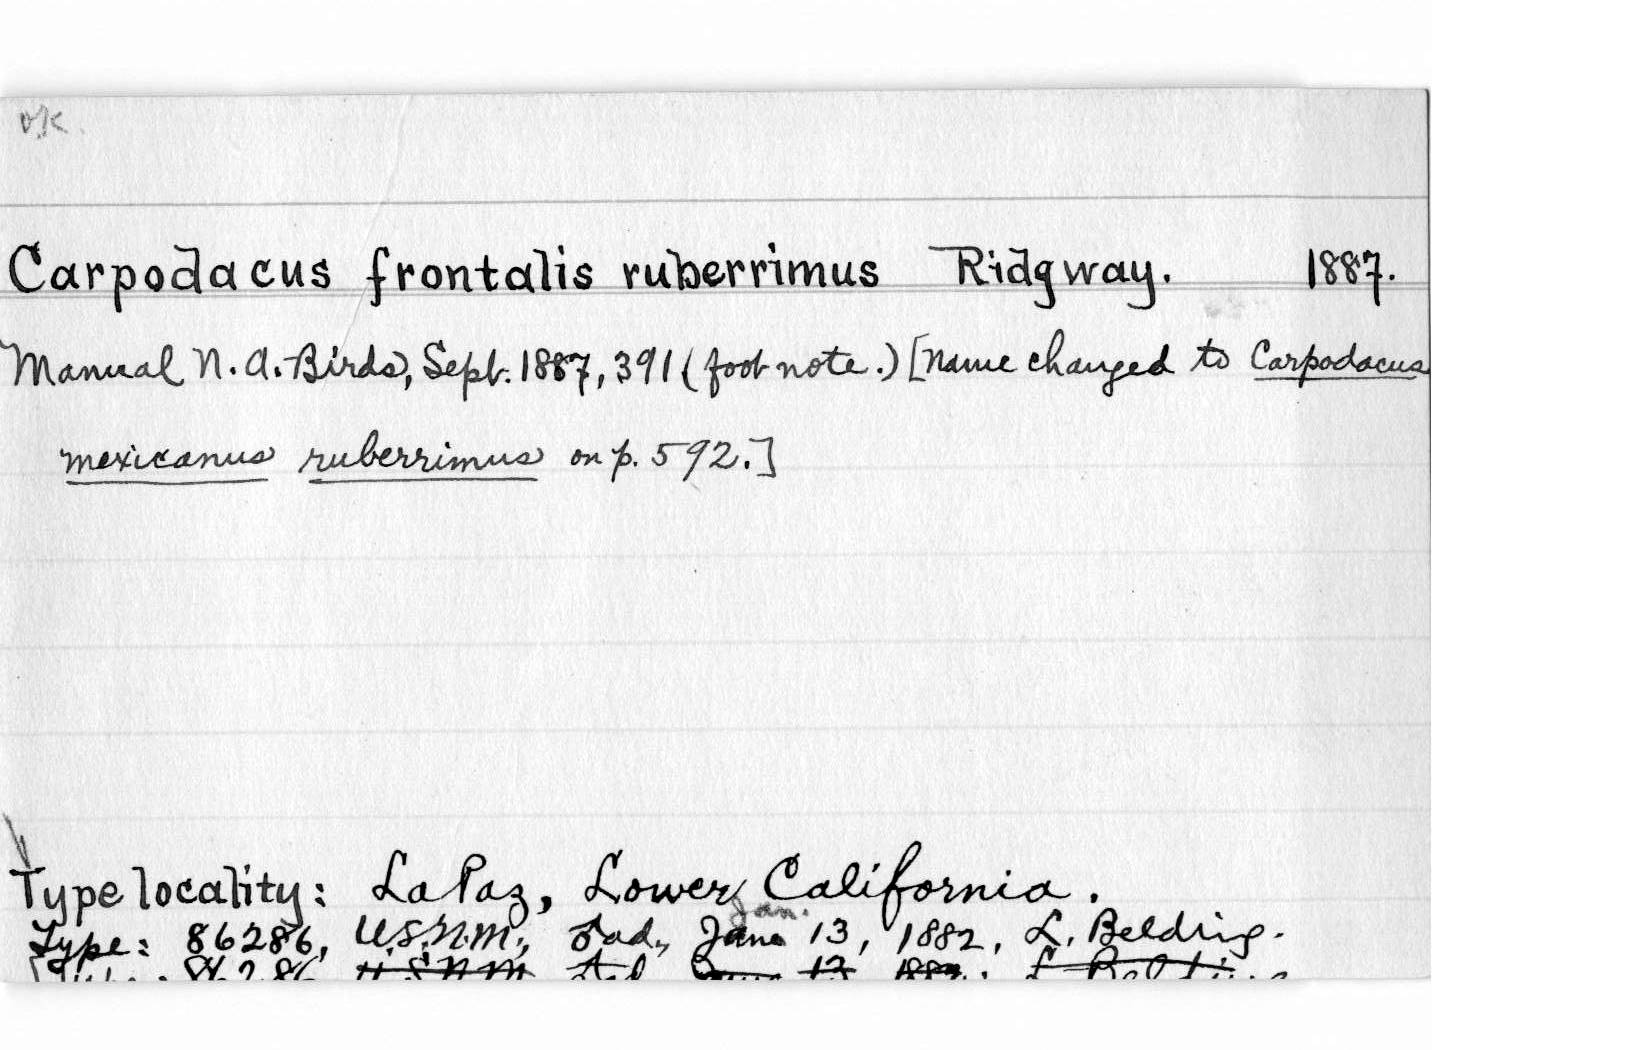 OK.
Carpodacus frontalis ruberrimus Ridgway. 1887.
Manual N. A. Birds, Sept. 1887, 391 (foot note.) [Name changed to Carpodacus
mexicanus ruberrimus on p. 592.]
Type locality: La Paz, Lower California.
Jan.
Type: 86286, U.S.N.M., ♂ ad., June 13, 1882, L. Belding.
86286 U.S.N.M. 13 1882. L. Belding